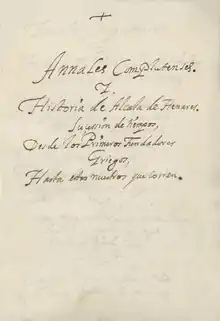 Annales Complutenses.
Y.
Historia de Alcala de Henares.
Sucession de tiempos,
Desde los Primeros Fundadores
Griegos,
Hasta estos nuestros que corren.